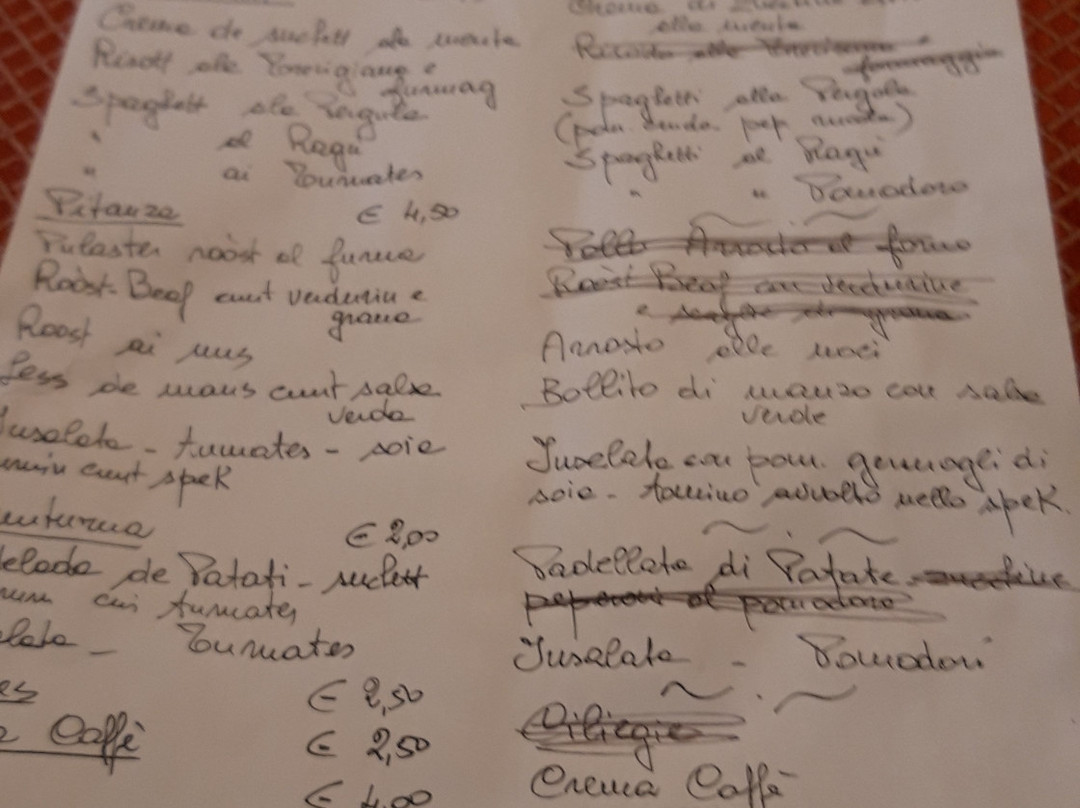 Crema de suchett ala menta
Risott ala Parmigiana e
furmag
Spaghett ala Pergula
" al Ragu
" ai Tumates
Pitanza € 4,50
Pulaster roòst al furnu
Roòst-Beaf cunt verdurin e
grana
Roost ai nus
Less de mans cunt salsa
verda
Insalata - tumates - soia
cunt spek
€ 2,00
de Patati - suchett
cui tumates
Tumates
€ 2,50
Caffè € 2,50
€ 4,00
Crema di Zucchine
alla menta
formaggio
Spaghetti alla Pergola
(pan. cruda. pep. rucola)
Spaghetti al Ragù
" " Pomodoro
Pollo Arrosto al forno
Roast Beaf con verdurine
e scaglie di grana
Arrosto alle noci
Bollito di manzo con salsa
verde
Insalata con pom. germogli di
soia - tomino avvolto nello spek.
Padellata di Patate zucchine
peperoni al pomodoro
Insalata - Pomodori
Ciliegie
Crema Caffè